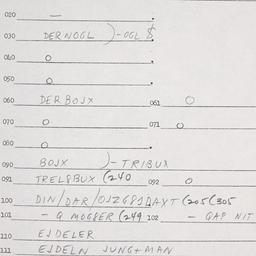 020 —
030 DERNOGL )-OGL $
040 O
050 O
060 DERBOJX 061 O
070 O 071 O
080 O
090 BOJX )- TRIBUX
091 TRELPBUX (240 092 O
100 DIN/DAR/
101 - G MOGPER (249 102 - GAP NIT
110 EJDELER
111 EJDELN JUNG+MAN